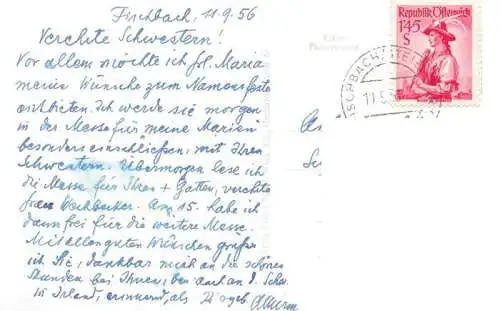 Fischbach, 11.9.56
Verehrte Schwestern!
Vor allem möchte ich frl. Maria
meine Wünsche zum Namensfeste
entbieten. Ich werde sie morgen
in der Messe für meine Marien
besonders einschließen, mit Ihren
Schwestern. Übermorgen lese ich
die Messe für Ihren + Gatten, verehrte
frau. Am 15. habe ich
dann frei für die weitere Messe.
Mit allen guten Wünschen grüße
ich Sie, dankbar mich an die schönen
Stunden bei Ihnen, bei auch an d.
in Irland, erinnernd, als Ihr ergeb.
Republik Österreich
1·45
S
FISCHBACH
11.
An